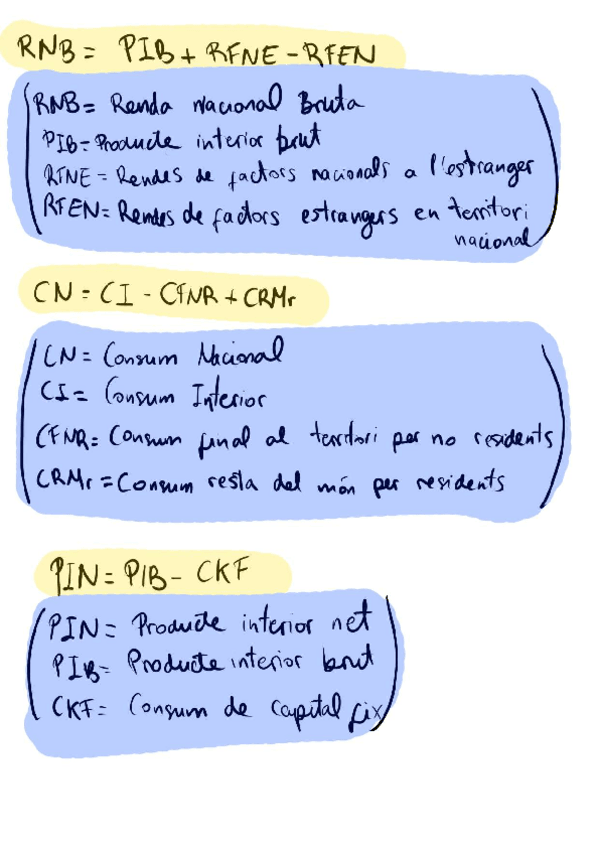 RNB = PIB + RFNE - RFEN
RNB = Renda Nacional Bruta
PIB = Producte interior brut
RFNE = Rendes de factors nacionals a l'estranger
RFEN = Rendes de factors estrangers en territori
nacional
CN = CI - CFNR + CRMr
CN = Consum Nacional
CI = Consum Interior
CFNR = Consum final al territori per no residents
CRMr = Consum resta del món per residents
PIN = PIB - CKF
PIN = Producte interior net
PIB = Producte interior brut
CKF = Consum de capital fix